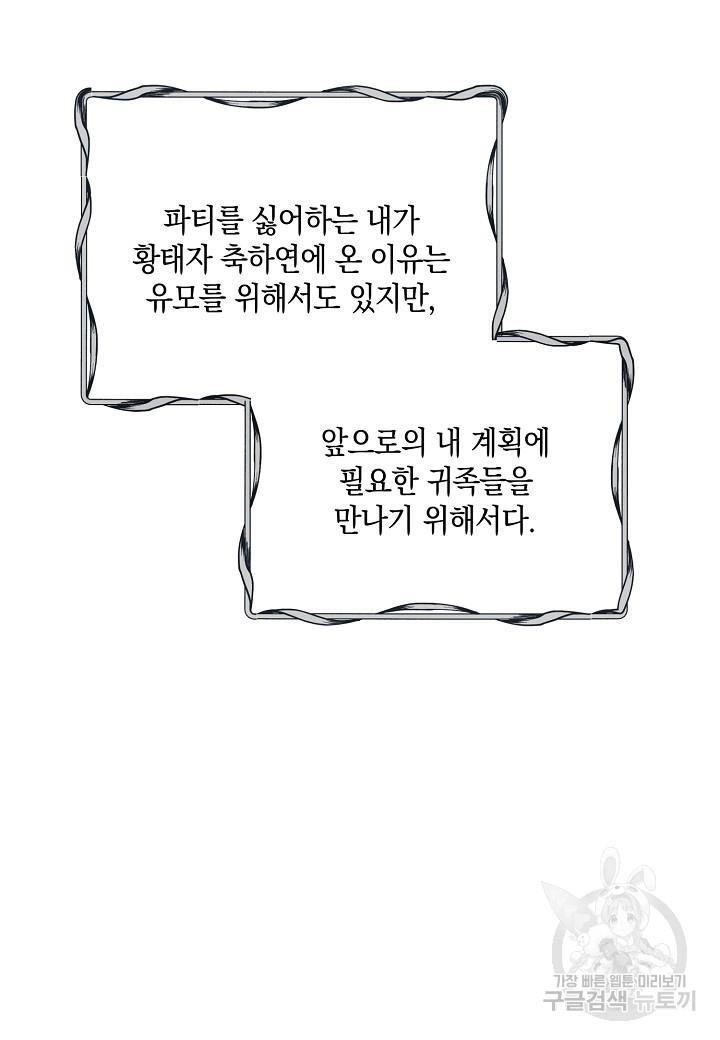 파티를 싫어하는 내가
황태자 축하연에 온 이유는
유모를 위해서도 있지만,
앞으로의 내 계획에
필요한 귀족들을
만나기 위해서다.
가장 빠른 웹툰 미리보기
구글검색 뉴토끼